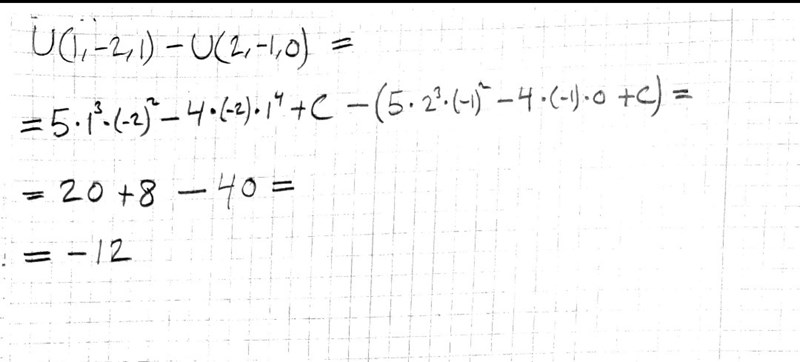 U(1,-2,1) - U(2,-1,0) =
= 5·1³·(-2)² - 4·(-2)·1⁴ + C - (5·2³·(-1)² - 4·(-1)·0 + C) =
= 20 + 8 - 40 =
= -12